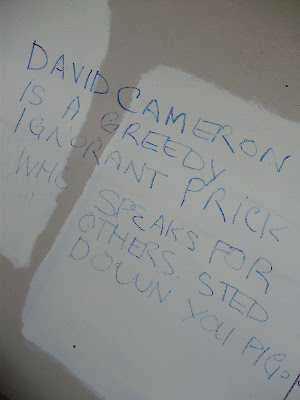 DAVID CAMERON
IS A GREEDY
IGNORANT PRICK
WHO SPEAKS FOR
OTHERS. STED
DOWN YOU PIG